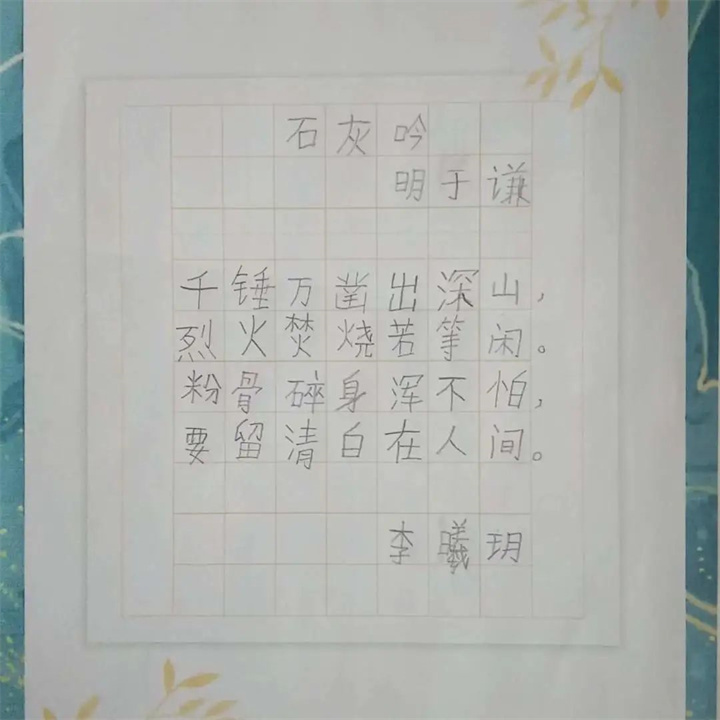 石灰吟
明于谦
千锤万凿出深山，
烈火焚烧若等闲。
粉骨碎身浑不怕，
要留清白在人间。
李曦玥